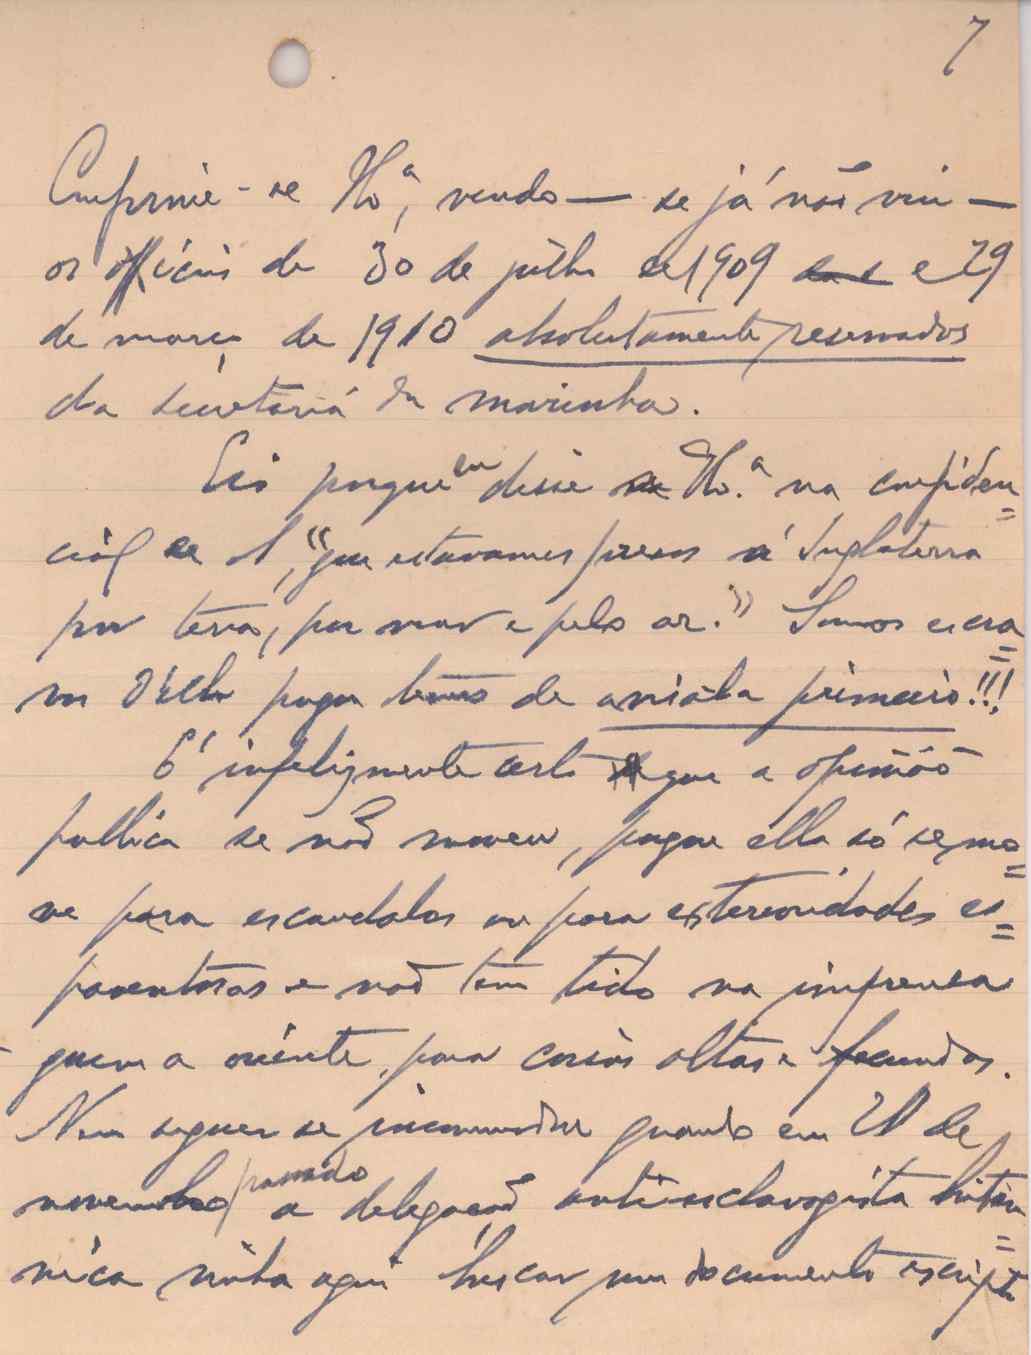 7
Confirme-se V. Ex.ª, vendo — se já não viu —
os officios de 30 de julho de 1909 e 29
de março de 1910 absolutamente reservados
da secretaria da marinha.
Eis porque eu disse a V. Ex.ª na confiden=
cial de "que estavamos presos á Inglaterra
por terra, por mar e pelo ar." Somos escra
vos d'ella porque temos de primeiro!!!
É infelizmente certo que a opinião
publica se não moveu, porque ella só se mo=
ve para escandalos ou para exterioridades es=
paventosas e não tem tido na imprensa
quem a oriente para coisas altas e fecundas.
Nem sequer se incommodou quando em 21 de
novembro passado a delegação antiesclavagista britan=
nica vinha aqui buscar um documento escripto